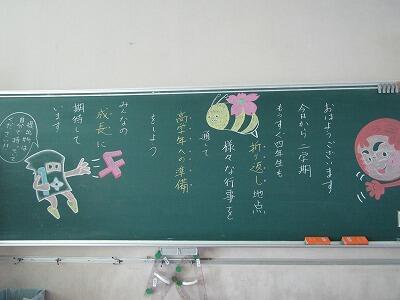 おはようございます
今日から二学期
もうすぐ四年生も
折り返し地点
様々な行事を
通して
高学年への準備
をしよう
みんなの
成長に
期待して
います
提出物は
自分で持って
ください!